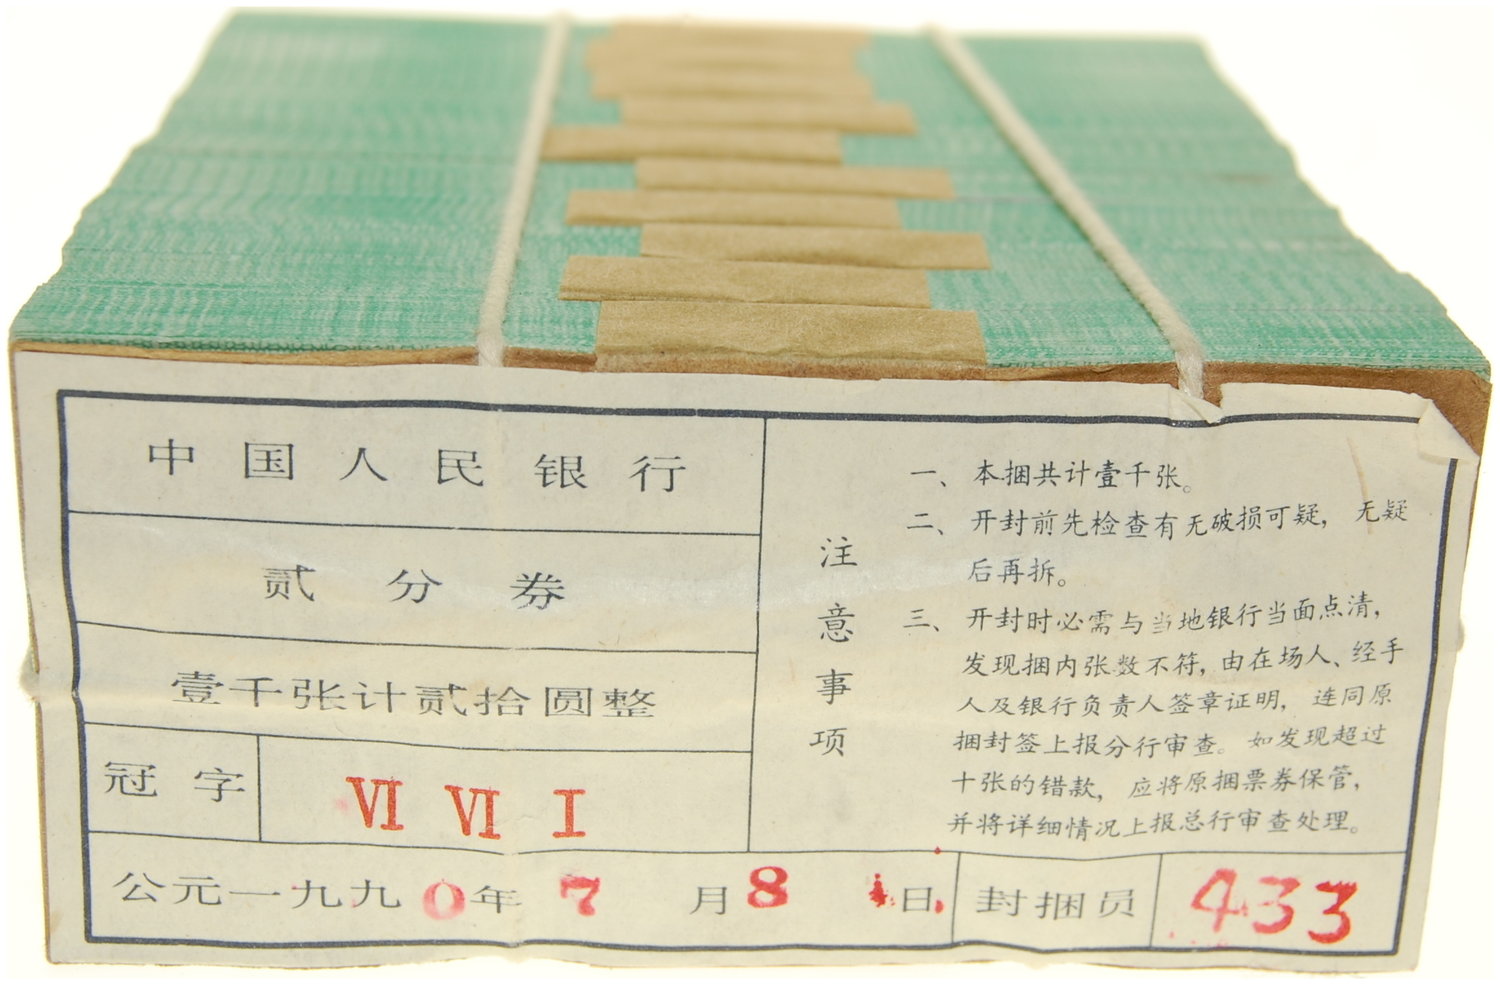 中国人民银行
贰分券
壹千张计贰拾圆整
冠字 VI VI I
注意事项
一、本捆共计壹千张。
二、开封前先检查有无破损可疑，无疑
后再拆。
三、开封时必需与当地银行当面点清，
发现捆内张数不符，由在场人、经手
人及银行负责人签章证明，连同原
捆封签上报分行审查。如发现超过
十张的错款，应将原捆票券保管，
并将详细情况上报总行审查处理。
公元一九九0年7月8日 封捆员 433